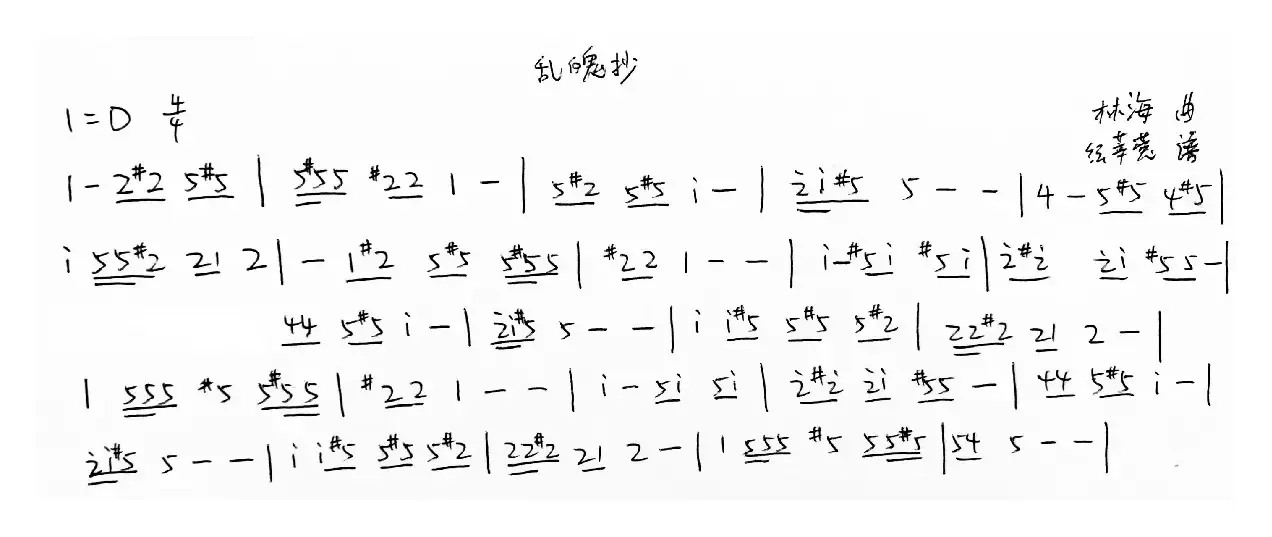 乱魄抄
1=D 4/4
林海 曲
谱
1 - 2#2 5#5 | 5#55 #22 1 - | 5#2 5#5 i - | 2̇i#5 5 - - | 4 - 5#5 4#5 |
i 55#2 21 2 | - 1#2 5#5 5#55 | #22 1 - - | i - #5i #5i | 2̇#2̇ 2̇i #55 - |
44 5#5 i - | 2̇i#5 5 - - | i i#5 5#5 5#2 | 22#2 21 2 - |
1 555 #5 5#55 | #22 1 - - | i - 5i 5i | 2̇#2̇ 2̇i #55 - | 44 5#5 i - |
2̇i#5 5 - - | i i#5 5#5 5#2 | 22#2 21 2 - | 1 555 #5 55#5 | 54 5 - - |